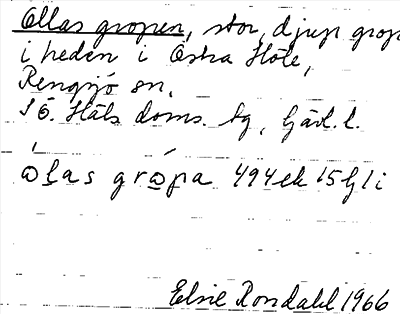 Ollas gropen, stor, djup grop
i heden i Östra Höle,
Rengsjö sn,
SÖ. Häls doms. tg, Gävl. l.
o̲l̲as gro̲pa 494ek 15 G l i
Elsie Rondahl 1966